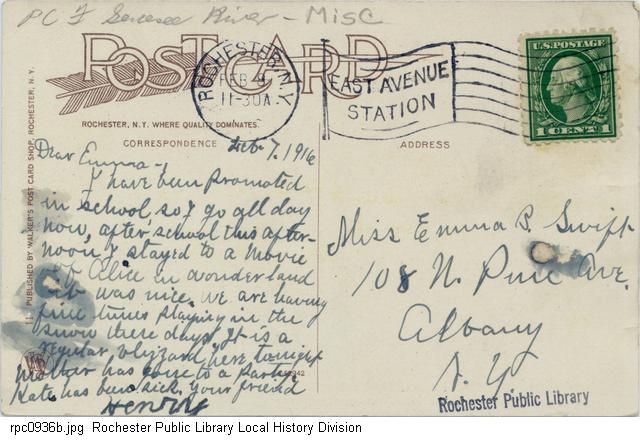 PC F Genesee River - Misc
POST CARD
ROCHESTER, N.Y.
FEB 9
11-30A
EAST AVENUE
STATION
U.S. POSTAGE
1 CENT 1
ROCHESTER, N.Y. WHERE QUALITY DOMINATES.
CORRESPONDENCE
ADDRESS
PUBLISHED BY WALKER'S POST CARD SHOP, ROCHESTER, N.Y.
Feb 7, 1916
Dear Emma -
I have been promoted
in school, so I go all day
now, after school this after-
noon I stayed to a movie
of Alice in wonderland
it was nice. We are having
fine times playing in the
snow these days. It is a
regular blizzard here tonight
Mother has gone to a party
Kate has been sick. Your friend
Henry
Miss Emma B. Swift
108 N. Pine Ave.
Albany
N.Y.
Rochester Public Library
rpc0936b.jpg Rochester Public Library Local History Division